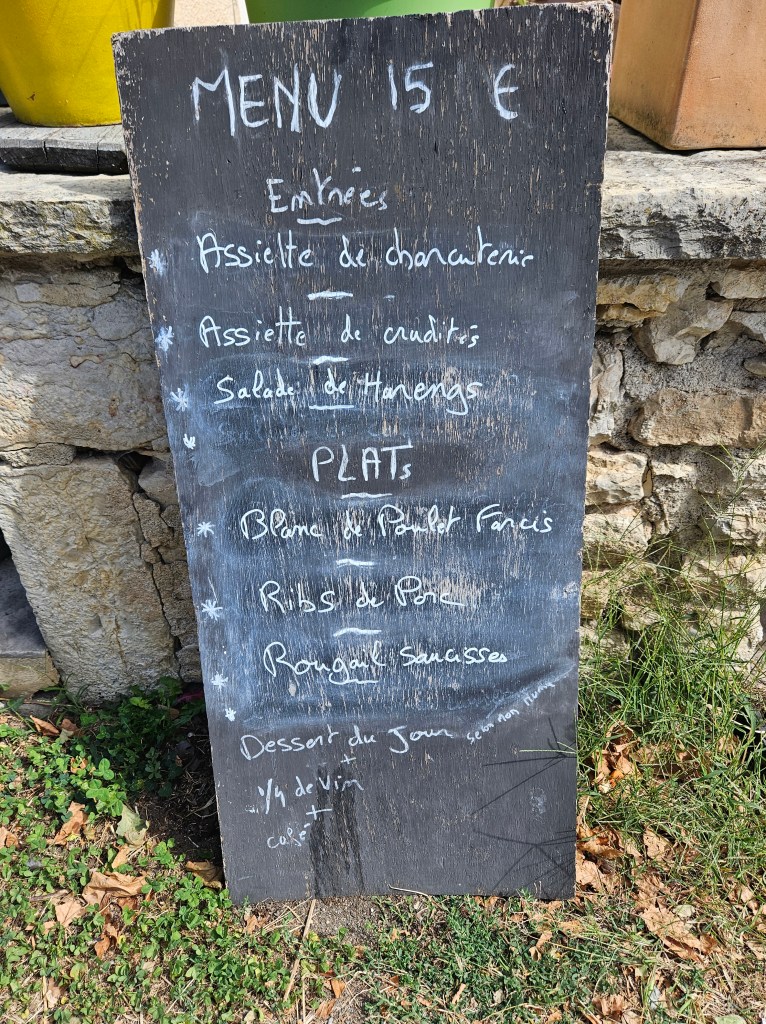 MENU 15 €
Entrées
* Assiette de charcuterie
* Assiette de crudités
* Salade de Harengs
*
PLATS
* Blanc de Poulet Farcis
* Ribs de Porc
Rougail saucisses
*
*
Dessert du Jour selon mon humeur
+
1/4 de Vin
+
café